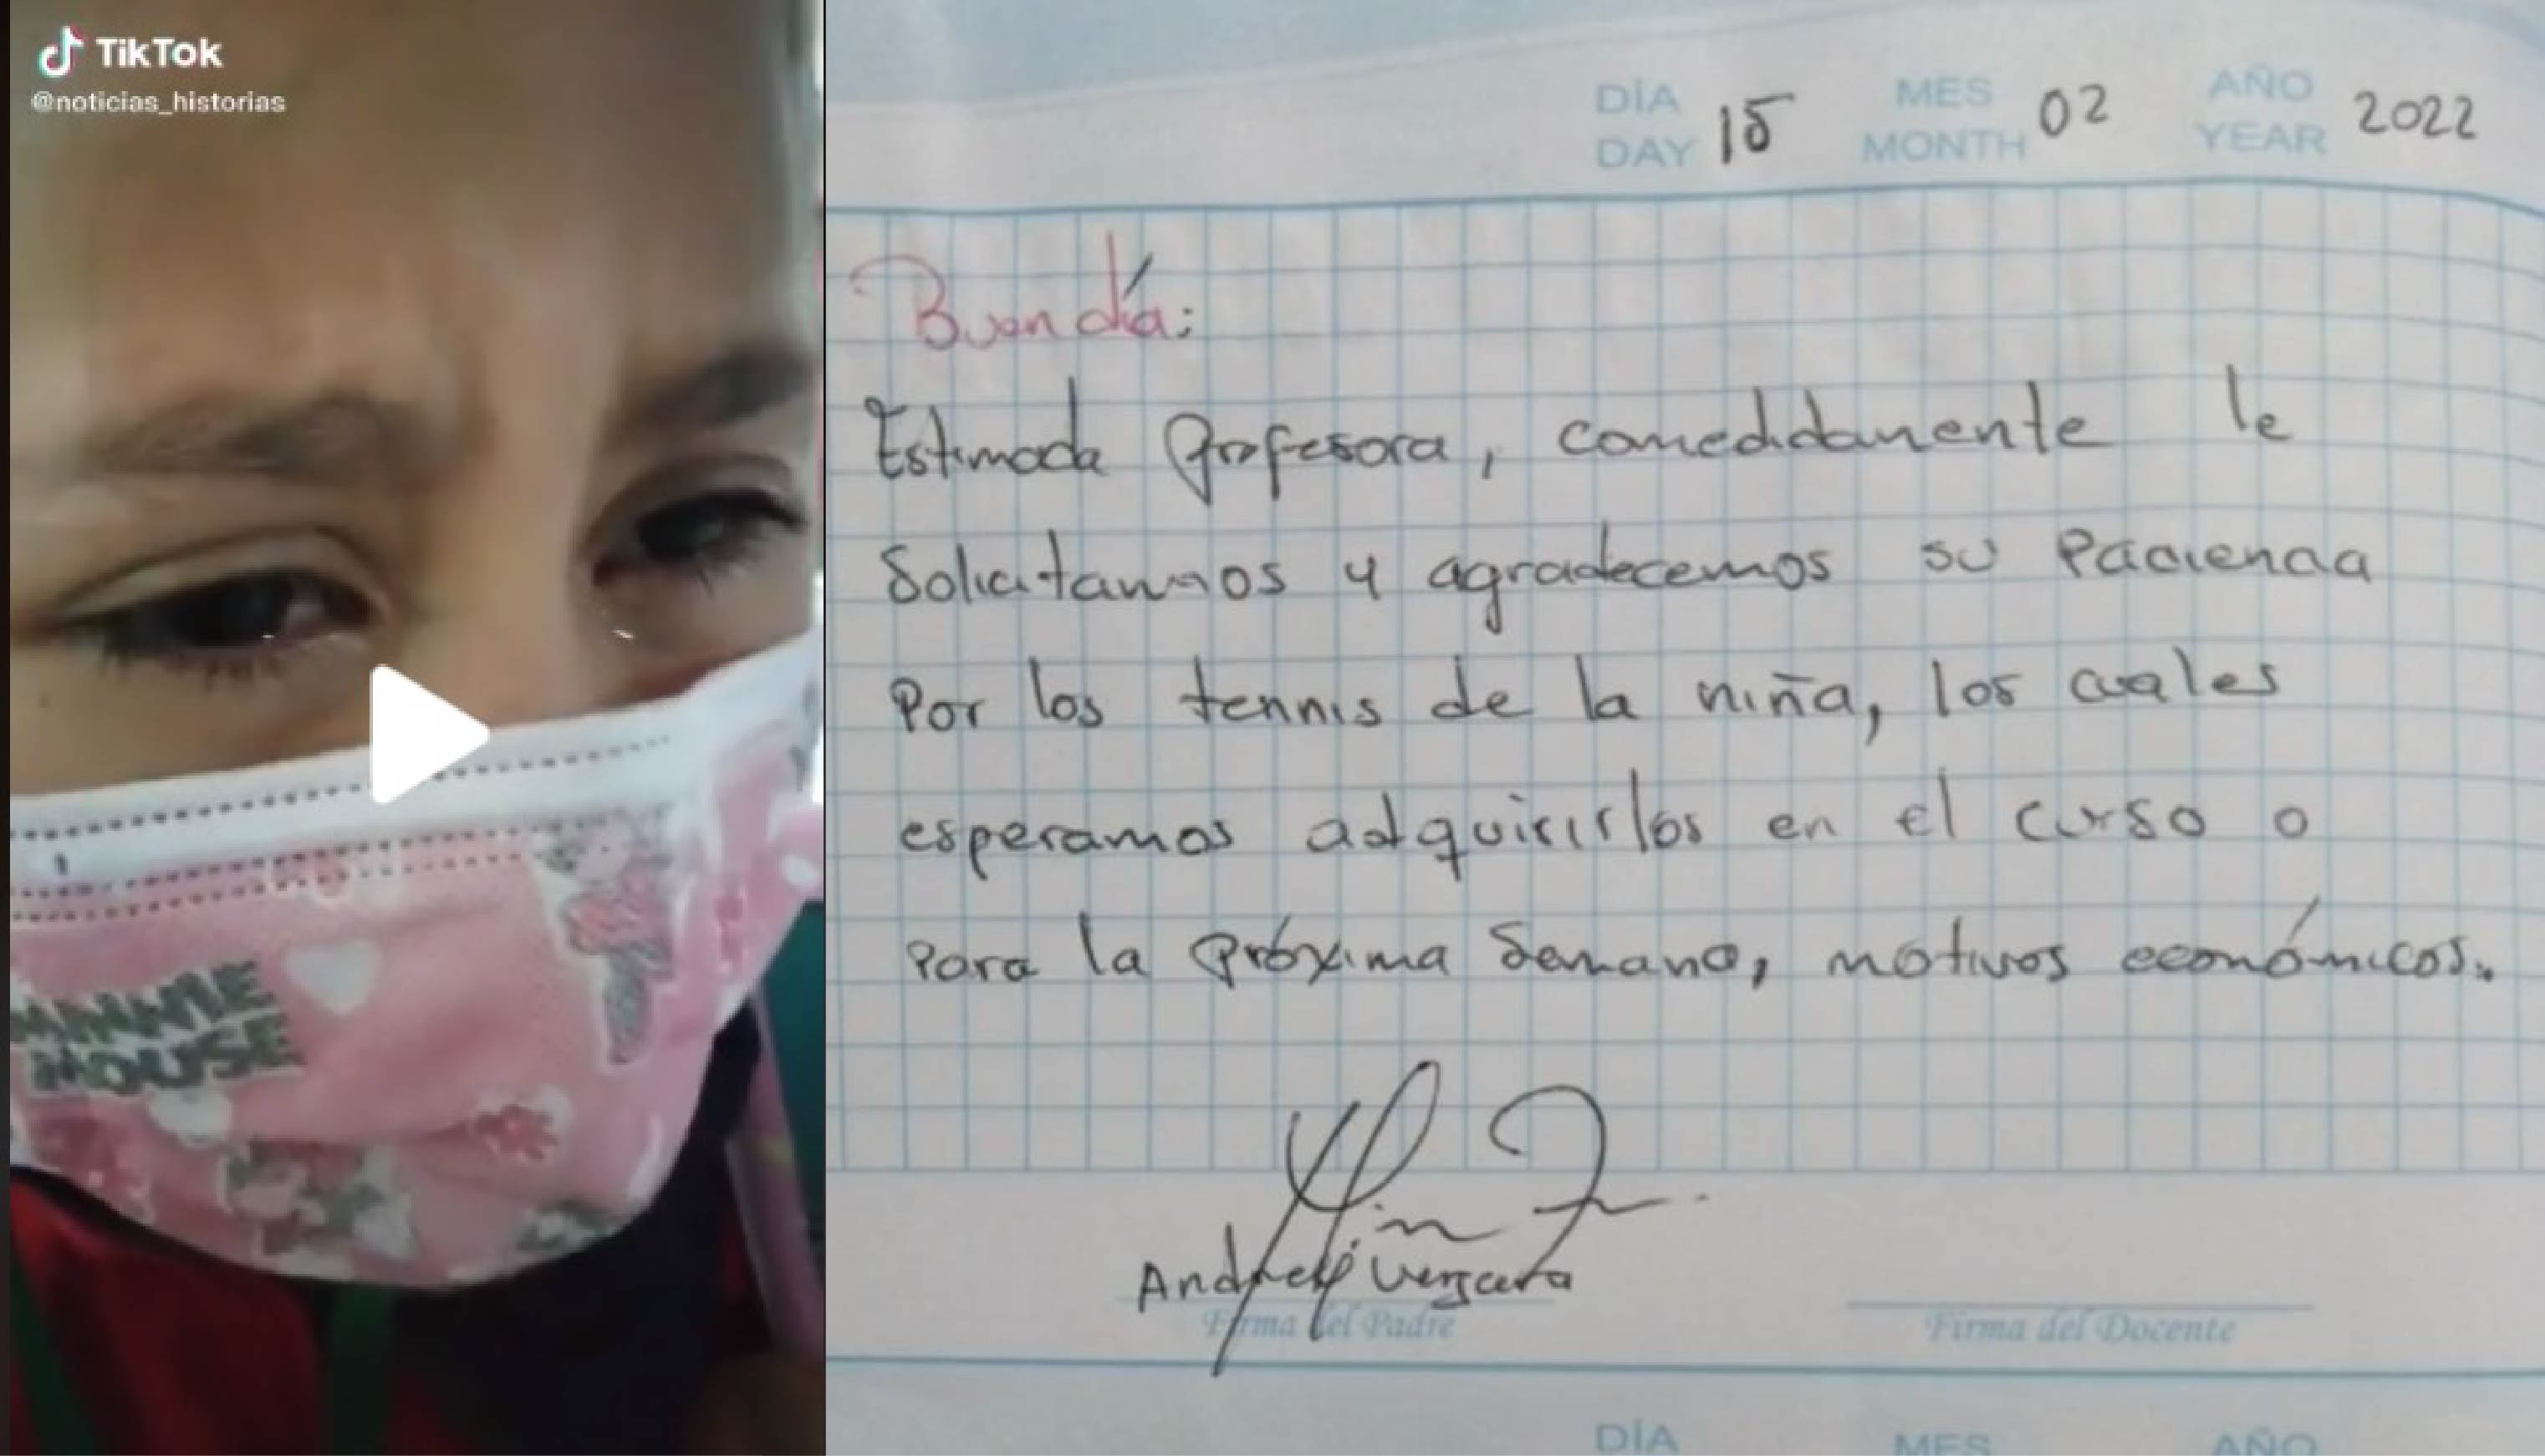 TikTok
@noticias_historias
MINNIE
MOUSE
DÍA MES AÑO
DAY 15 MONTH 02 YEAR 2022
Buen día:
Estimada Profesora, comedidamente le
Solicitamos y agradecemos su Paciencia
Por los tennis de la niña, los cuales
esperamos adquirirlos en el curso o
para la Próxima Semana, motivos económicos.
Andrey Vergara
Firma del Padre Firma del Docente
DÍA MES AÑO